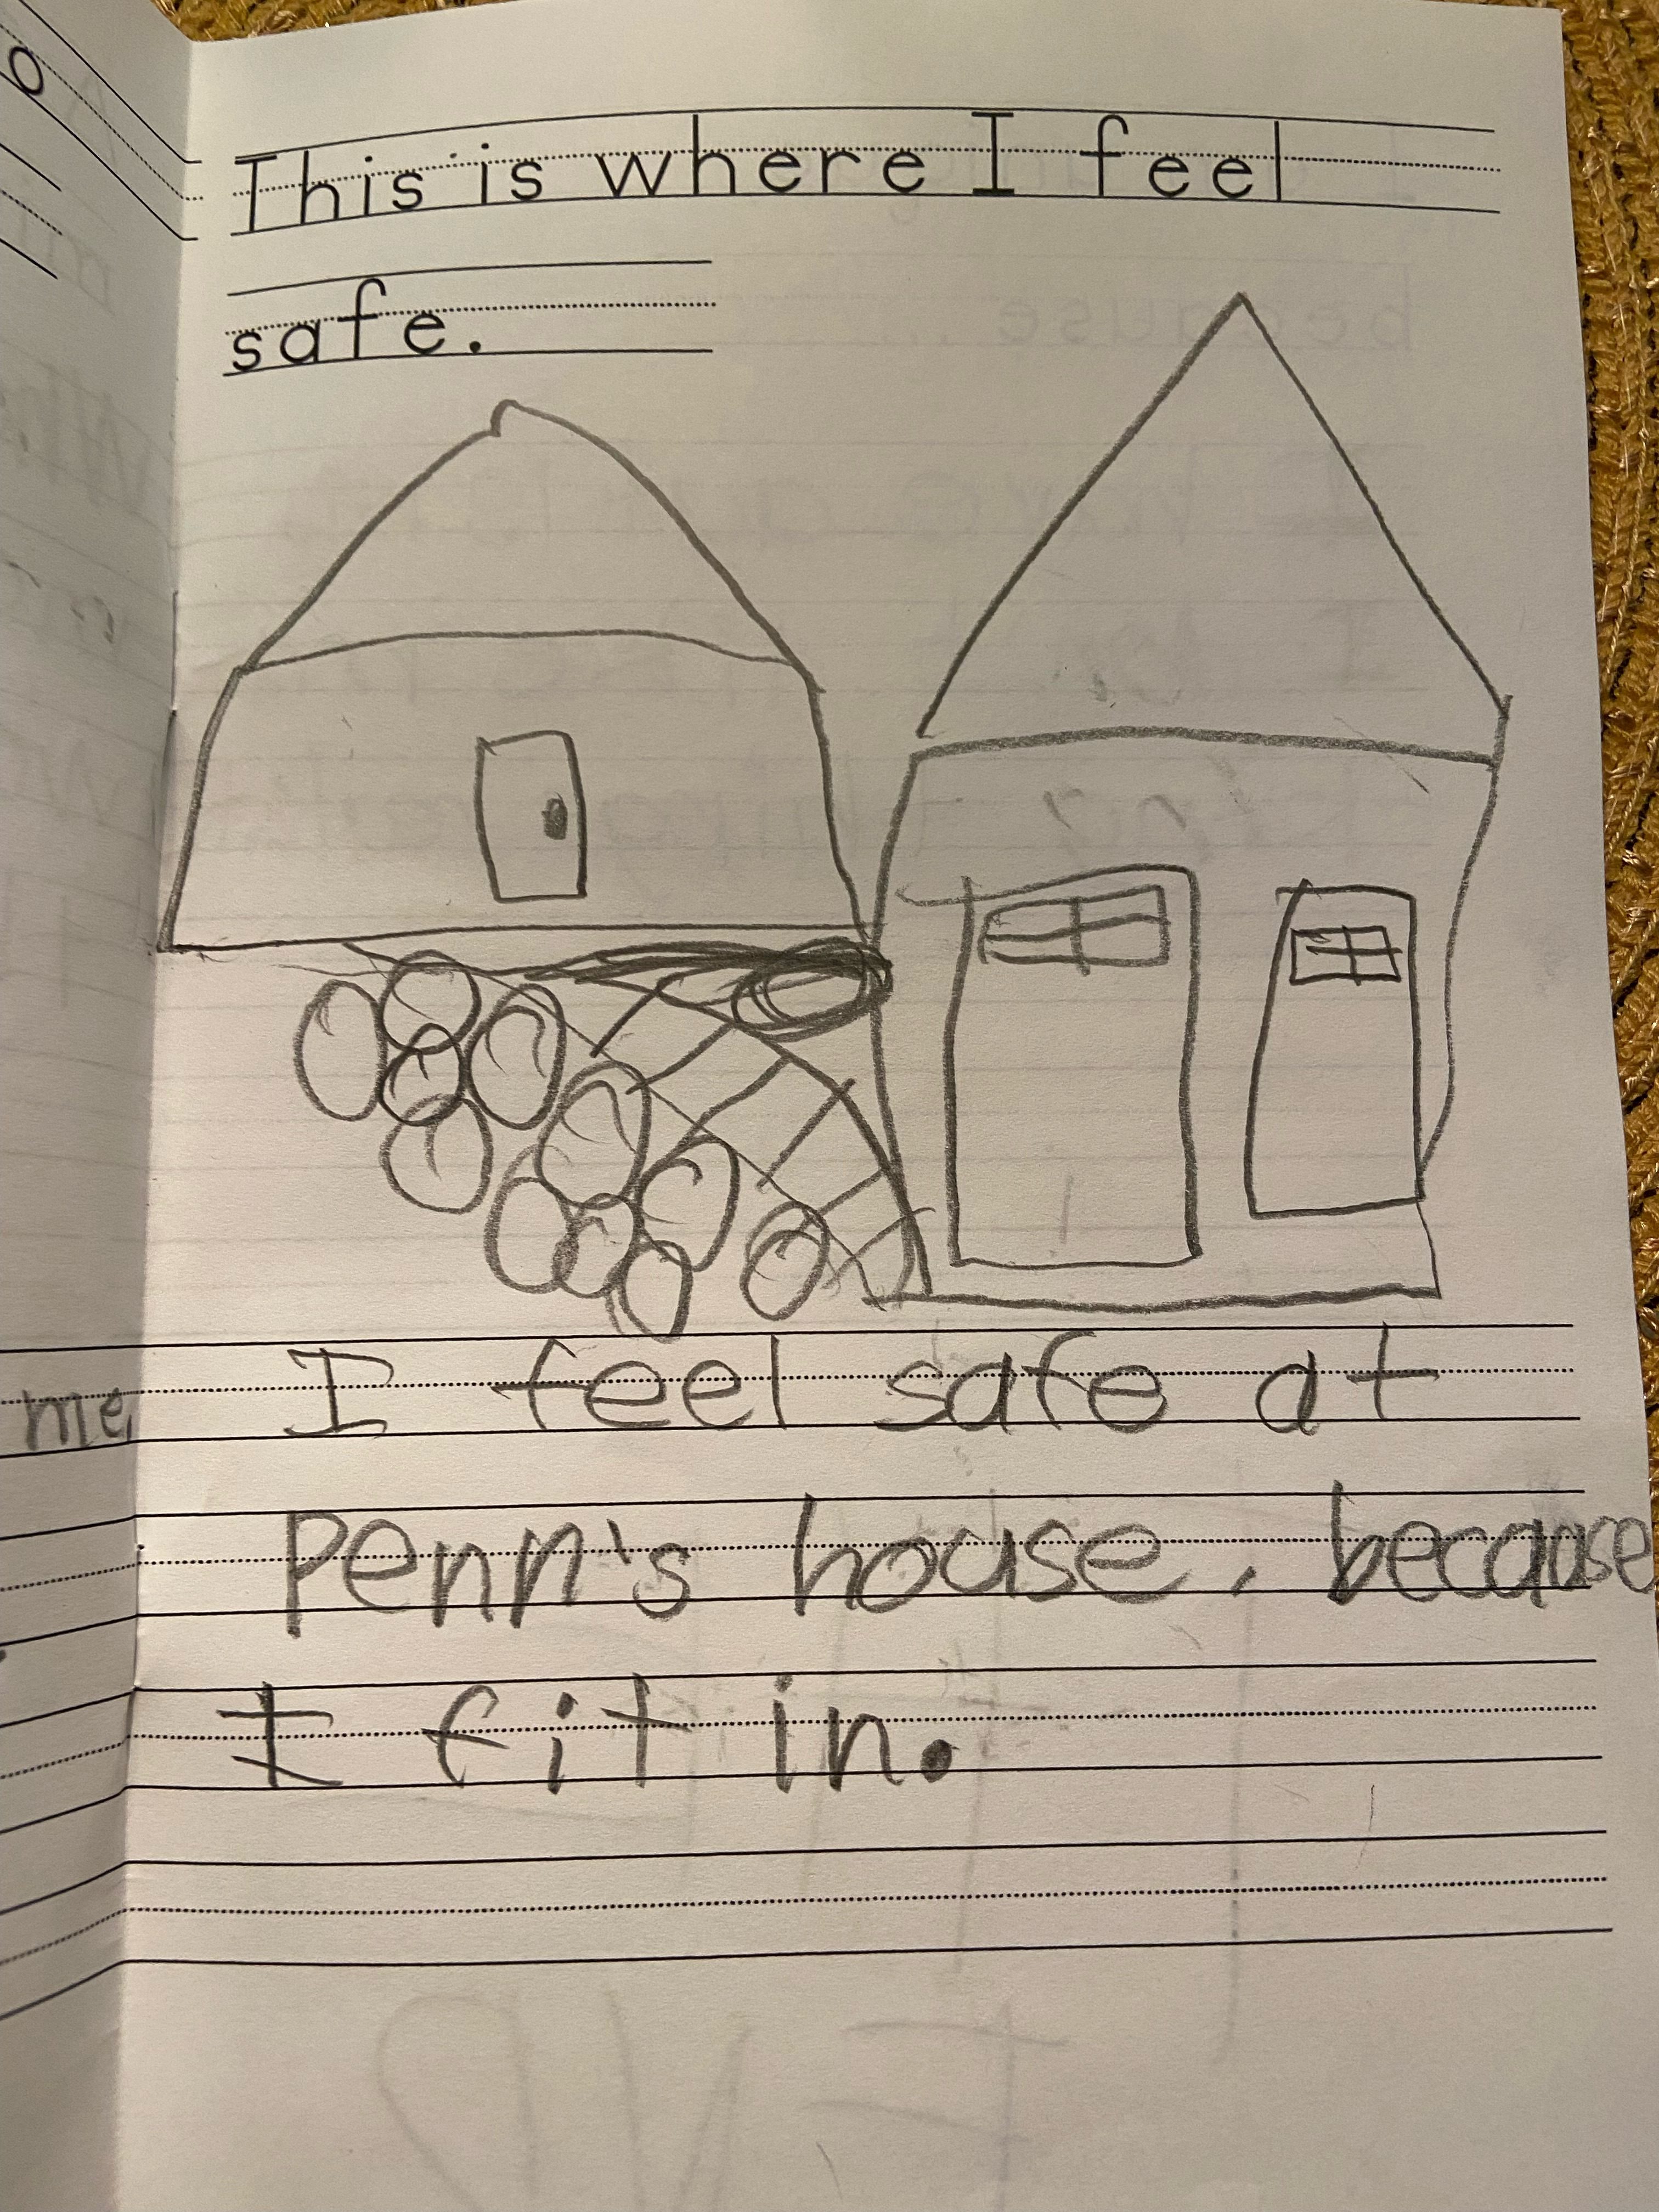 This is where I feel
safe.
me I feel safe at
Penn's house. because
I fit in.